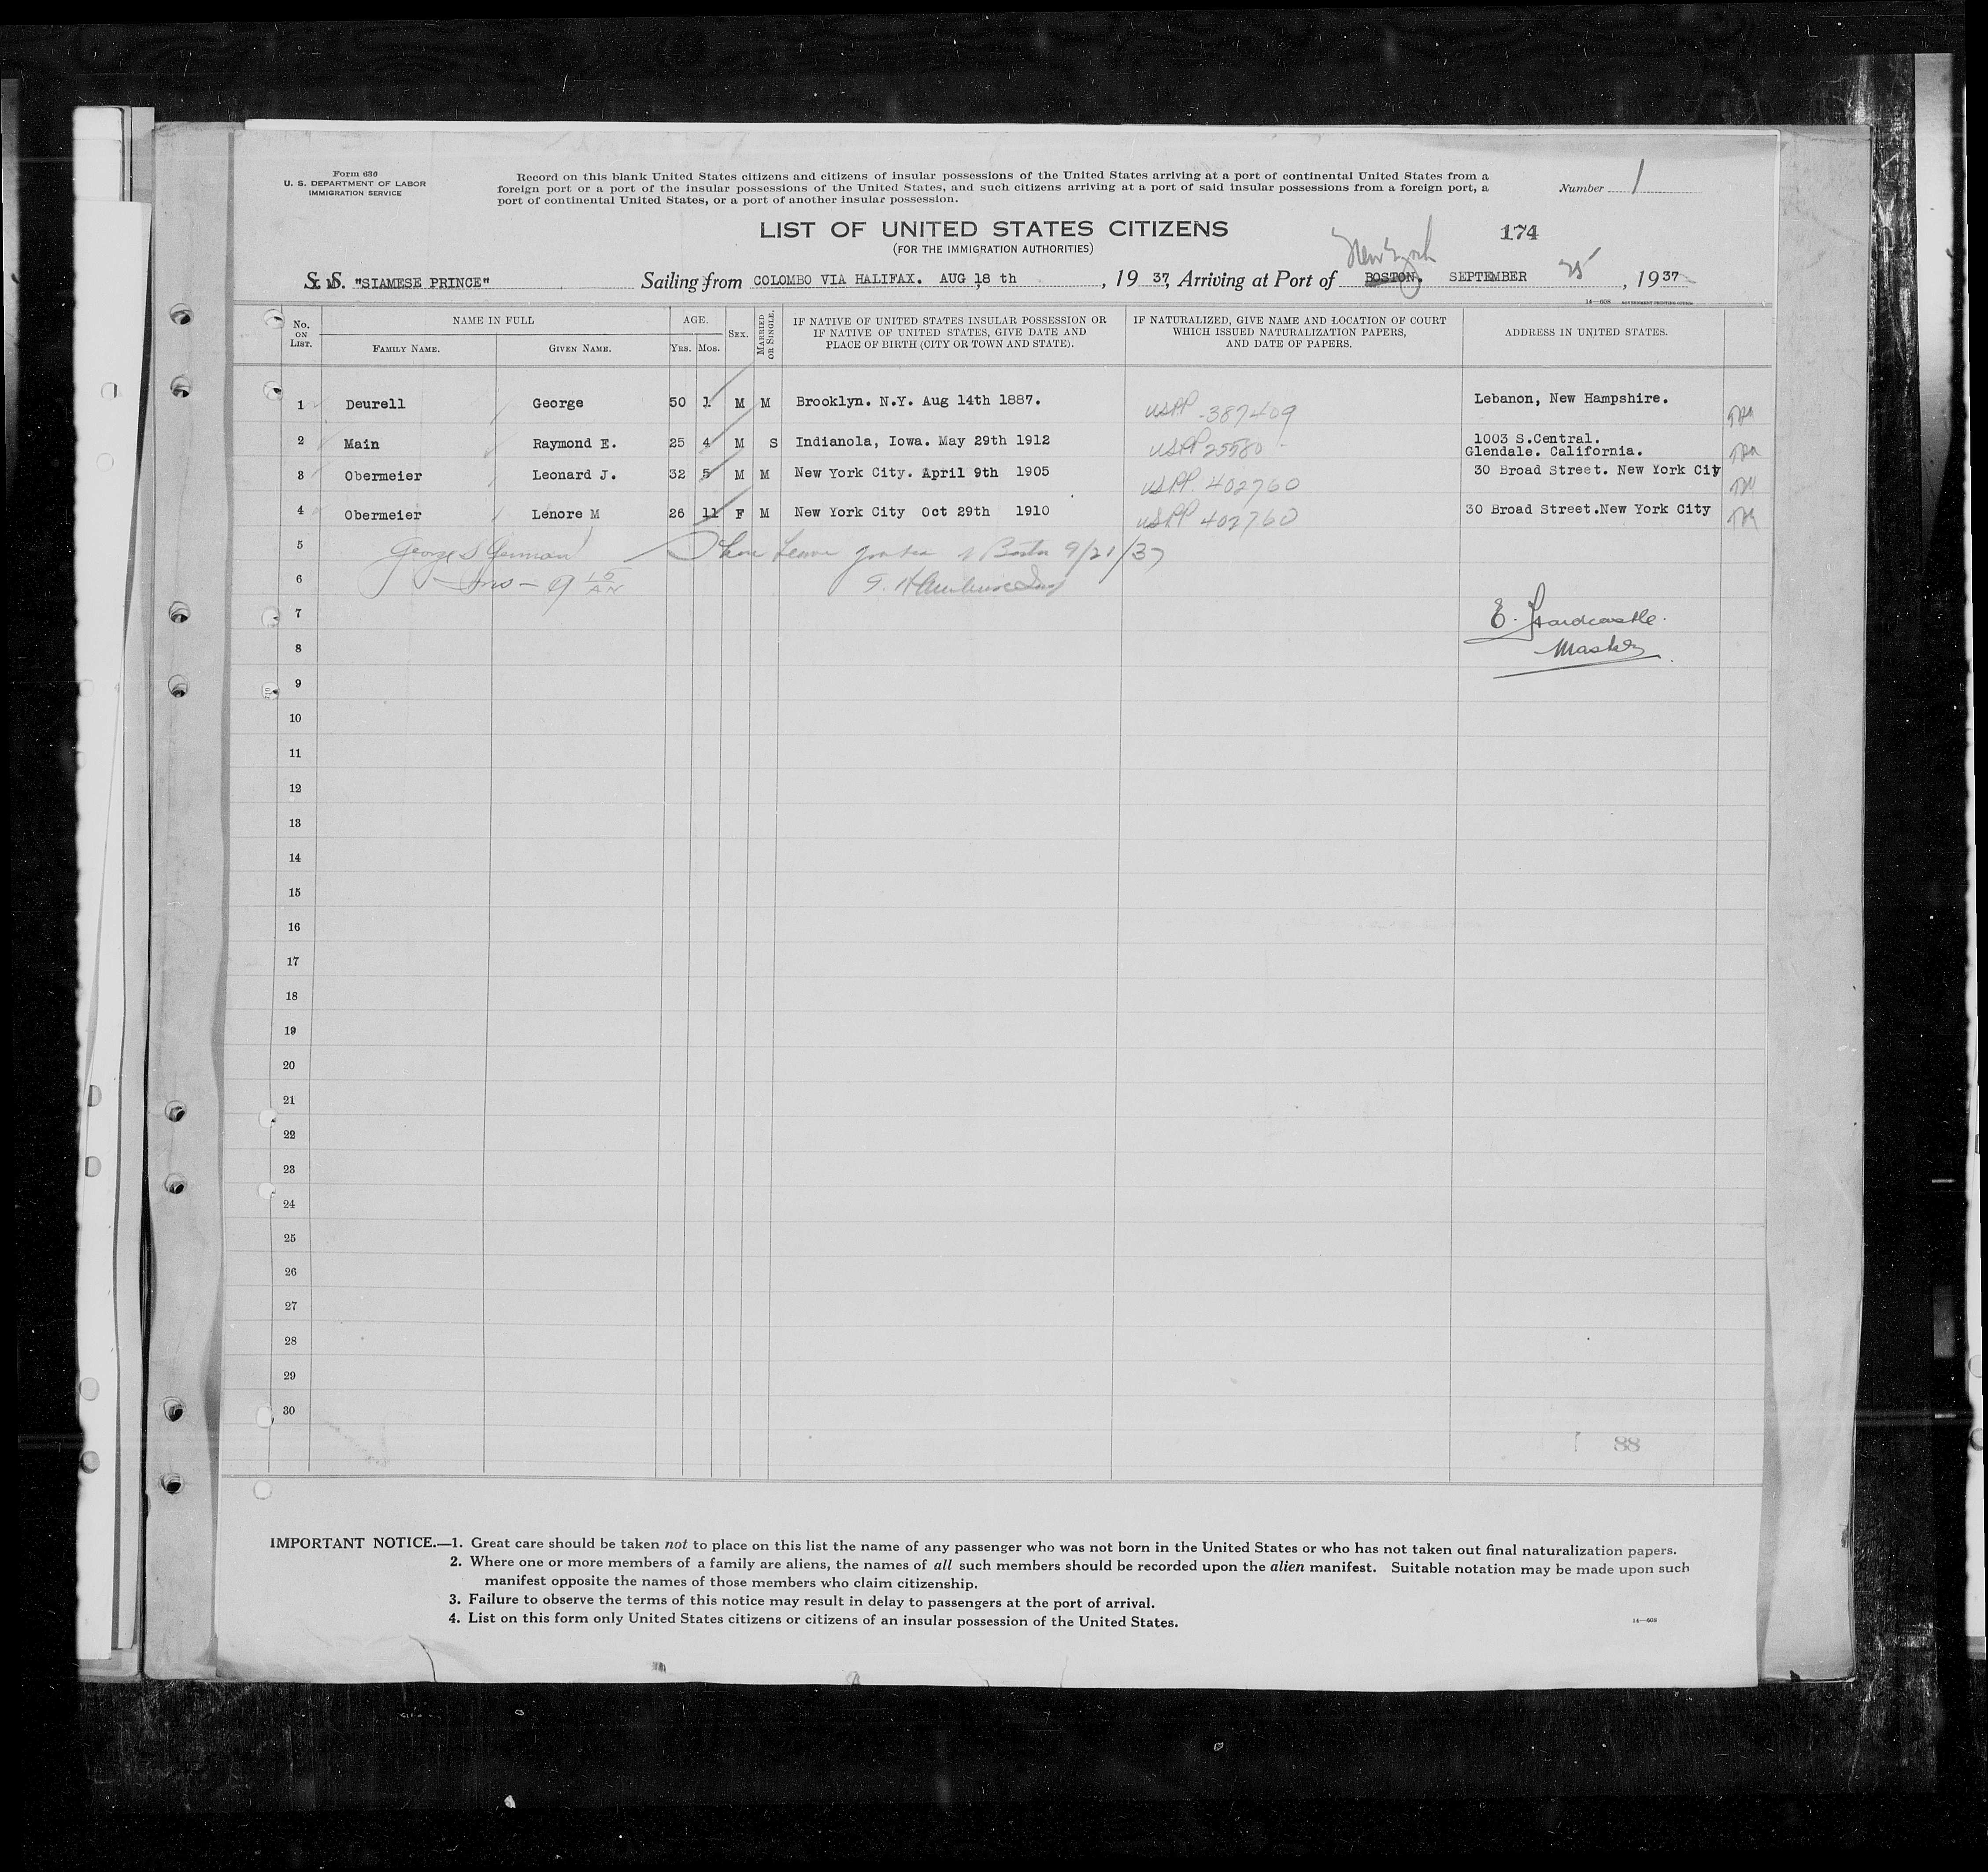 Form 630
U. S. DEPARTMENT OF LABOR
IMMIGRATION SERVICE
Record on this blank United States citizens and citizens of insular possessions of the United States arriving at a port of continental United States from a
foreign port or a port of the insular possessions of the United States, and such citizens arriving at a port of said insular possessions from a foreign port, a
port of continental United States, or a port of another insular possession.
Number 1
LIST OF UNITED STATES CITIZENS
(FOR THE IMMIGRATION AUTHORITIES)
174
New York
S. S. "SIAMESE PRINCE" Sailing from COLOMBO VIA HALIFAX. AUG 18 th, 1937, Arriving at Port of BOSTON. SEPTEMBER 25, 1937
14—608 GOVERNMENT PRINTING OFFICE
No. ON LIST.
NAME IN FULL
FAMILY NAME.
GIVEN NAME.
AGE.
YRS. MOS.
SEX.
MARRIED OR SINGLE.
IF NATIVE OF UNITED STATES INSULAR POSSESSION OR
IF NATIVE OF UNITED STATES, GIVE DATE AND
PLACE OF BIRTH (CITY OR TOWN AND STATE).
IF NATURALIZED, GIVE NAME AND LOCATION OF COURT
WHICH ISSUED NATURALIZATION PAPERS,
AND DATE OF PAPERS.
ADDRESS IN UNITED STATES.
1 Deurell George 50 1 M M Brooklyn. N.Y. Aug 14th 1887. USPP 387409 Lebanon, New Hampshire.
2 Main Raymond E. 25 4 M S Indianola, Iowa. May 29th 1912 USPP 25580 1003 S.Central.
Glendale. California.
3 Obermeier Leonard J. 32 5 M M New York City. April 9th 1905 USPP. 402760 30 Broad Street. New York City
4 Obermeier Lenore M 26 11 F M New York City Oct 29th 1910 USPP 402760 30 Broad Street.New York City
5 George S Boston 9/21/37
6
7 E. Hardcastle.
8 Master
9
10
11
12
13
14
15
16
17
18
19
20
21
22
23
24
25
26
27
28
29
30
88
IMPORTANT NOTICE.—1. Great care should be taken not to place on this list the name of any passenger who was not born in the United States or who has not taken out final naturalization papers.
2. Where one or more members of a family are aliens, the names of all such members should be recorded upon the alien manifest. Suitable notation may be made upon such
manifest opposite the names of those members who claim citizenship.
3. Failure to observe the terms of this notice may result in delay to passengers at the port of arrival.
4. List on this form only United States citizens or citizens of an insular possession of the United States.
14—608